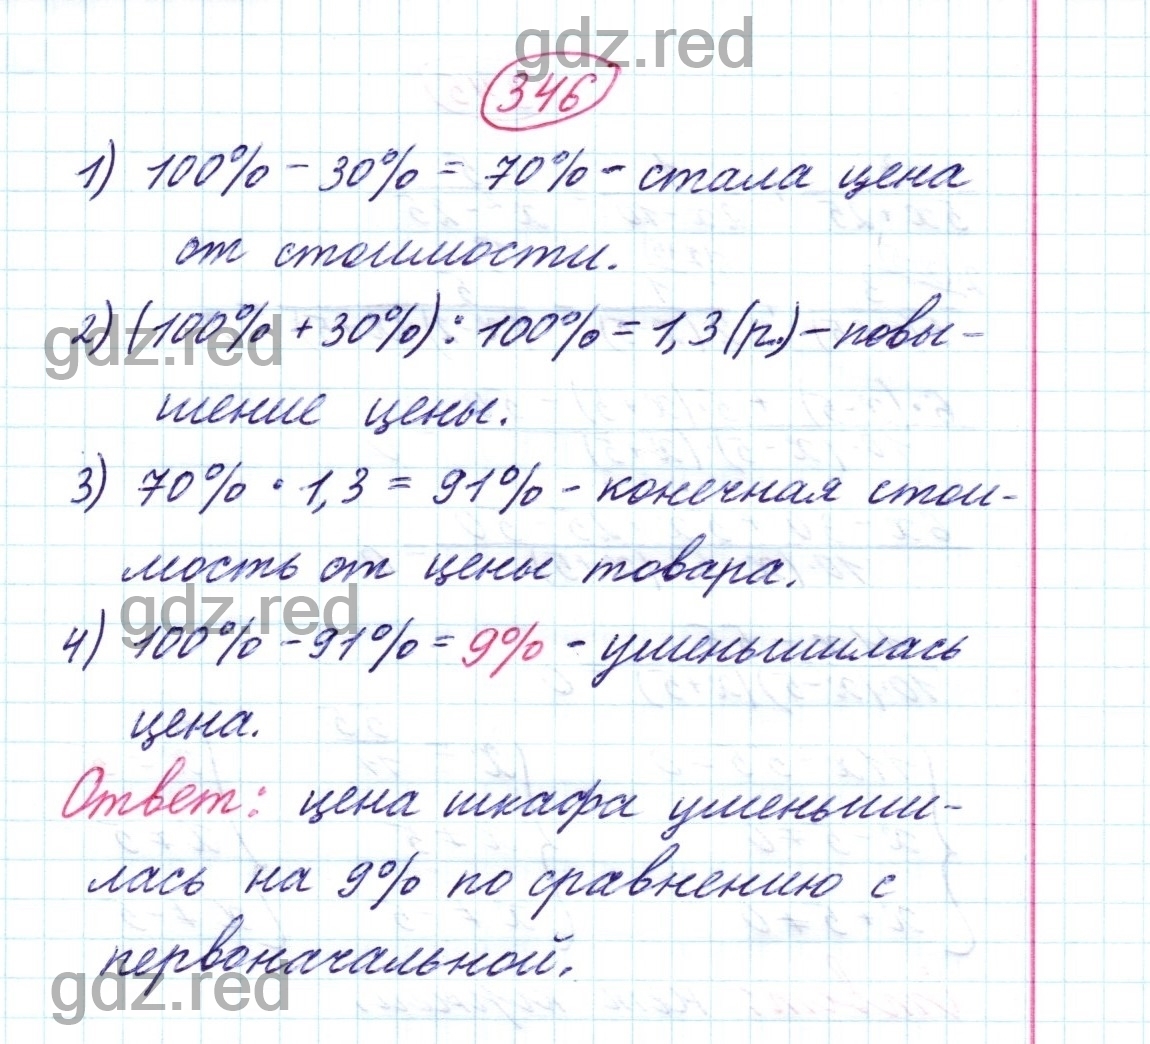 gdz.red
346
1) 100% - 30% = 70% - стала цена
от стоимости.
gdz.red
2) (100% + 30%) : 100% = 1,3 (р.) - повы-
шение цены.
3) 70% · 1,3 = 91% - конечная стои-
мость от цены товара.
gdz.red
4) 100% - 91% = 9% - уменьшилась
цена.
Ответ: цена шкафа уменьши-
лась на 9% по сравнению с
первоначальной.
gdz.red